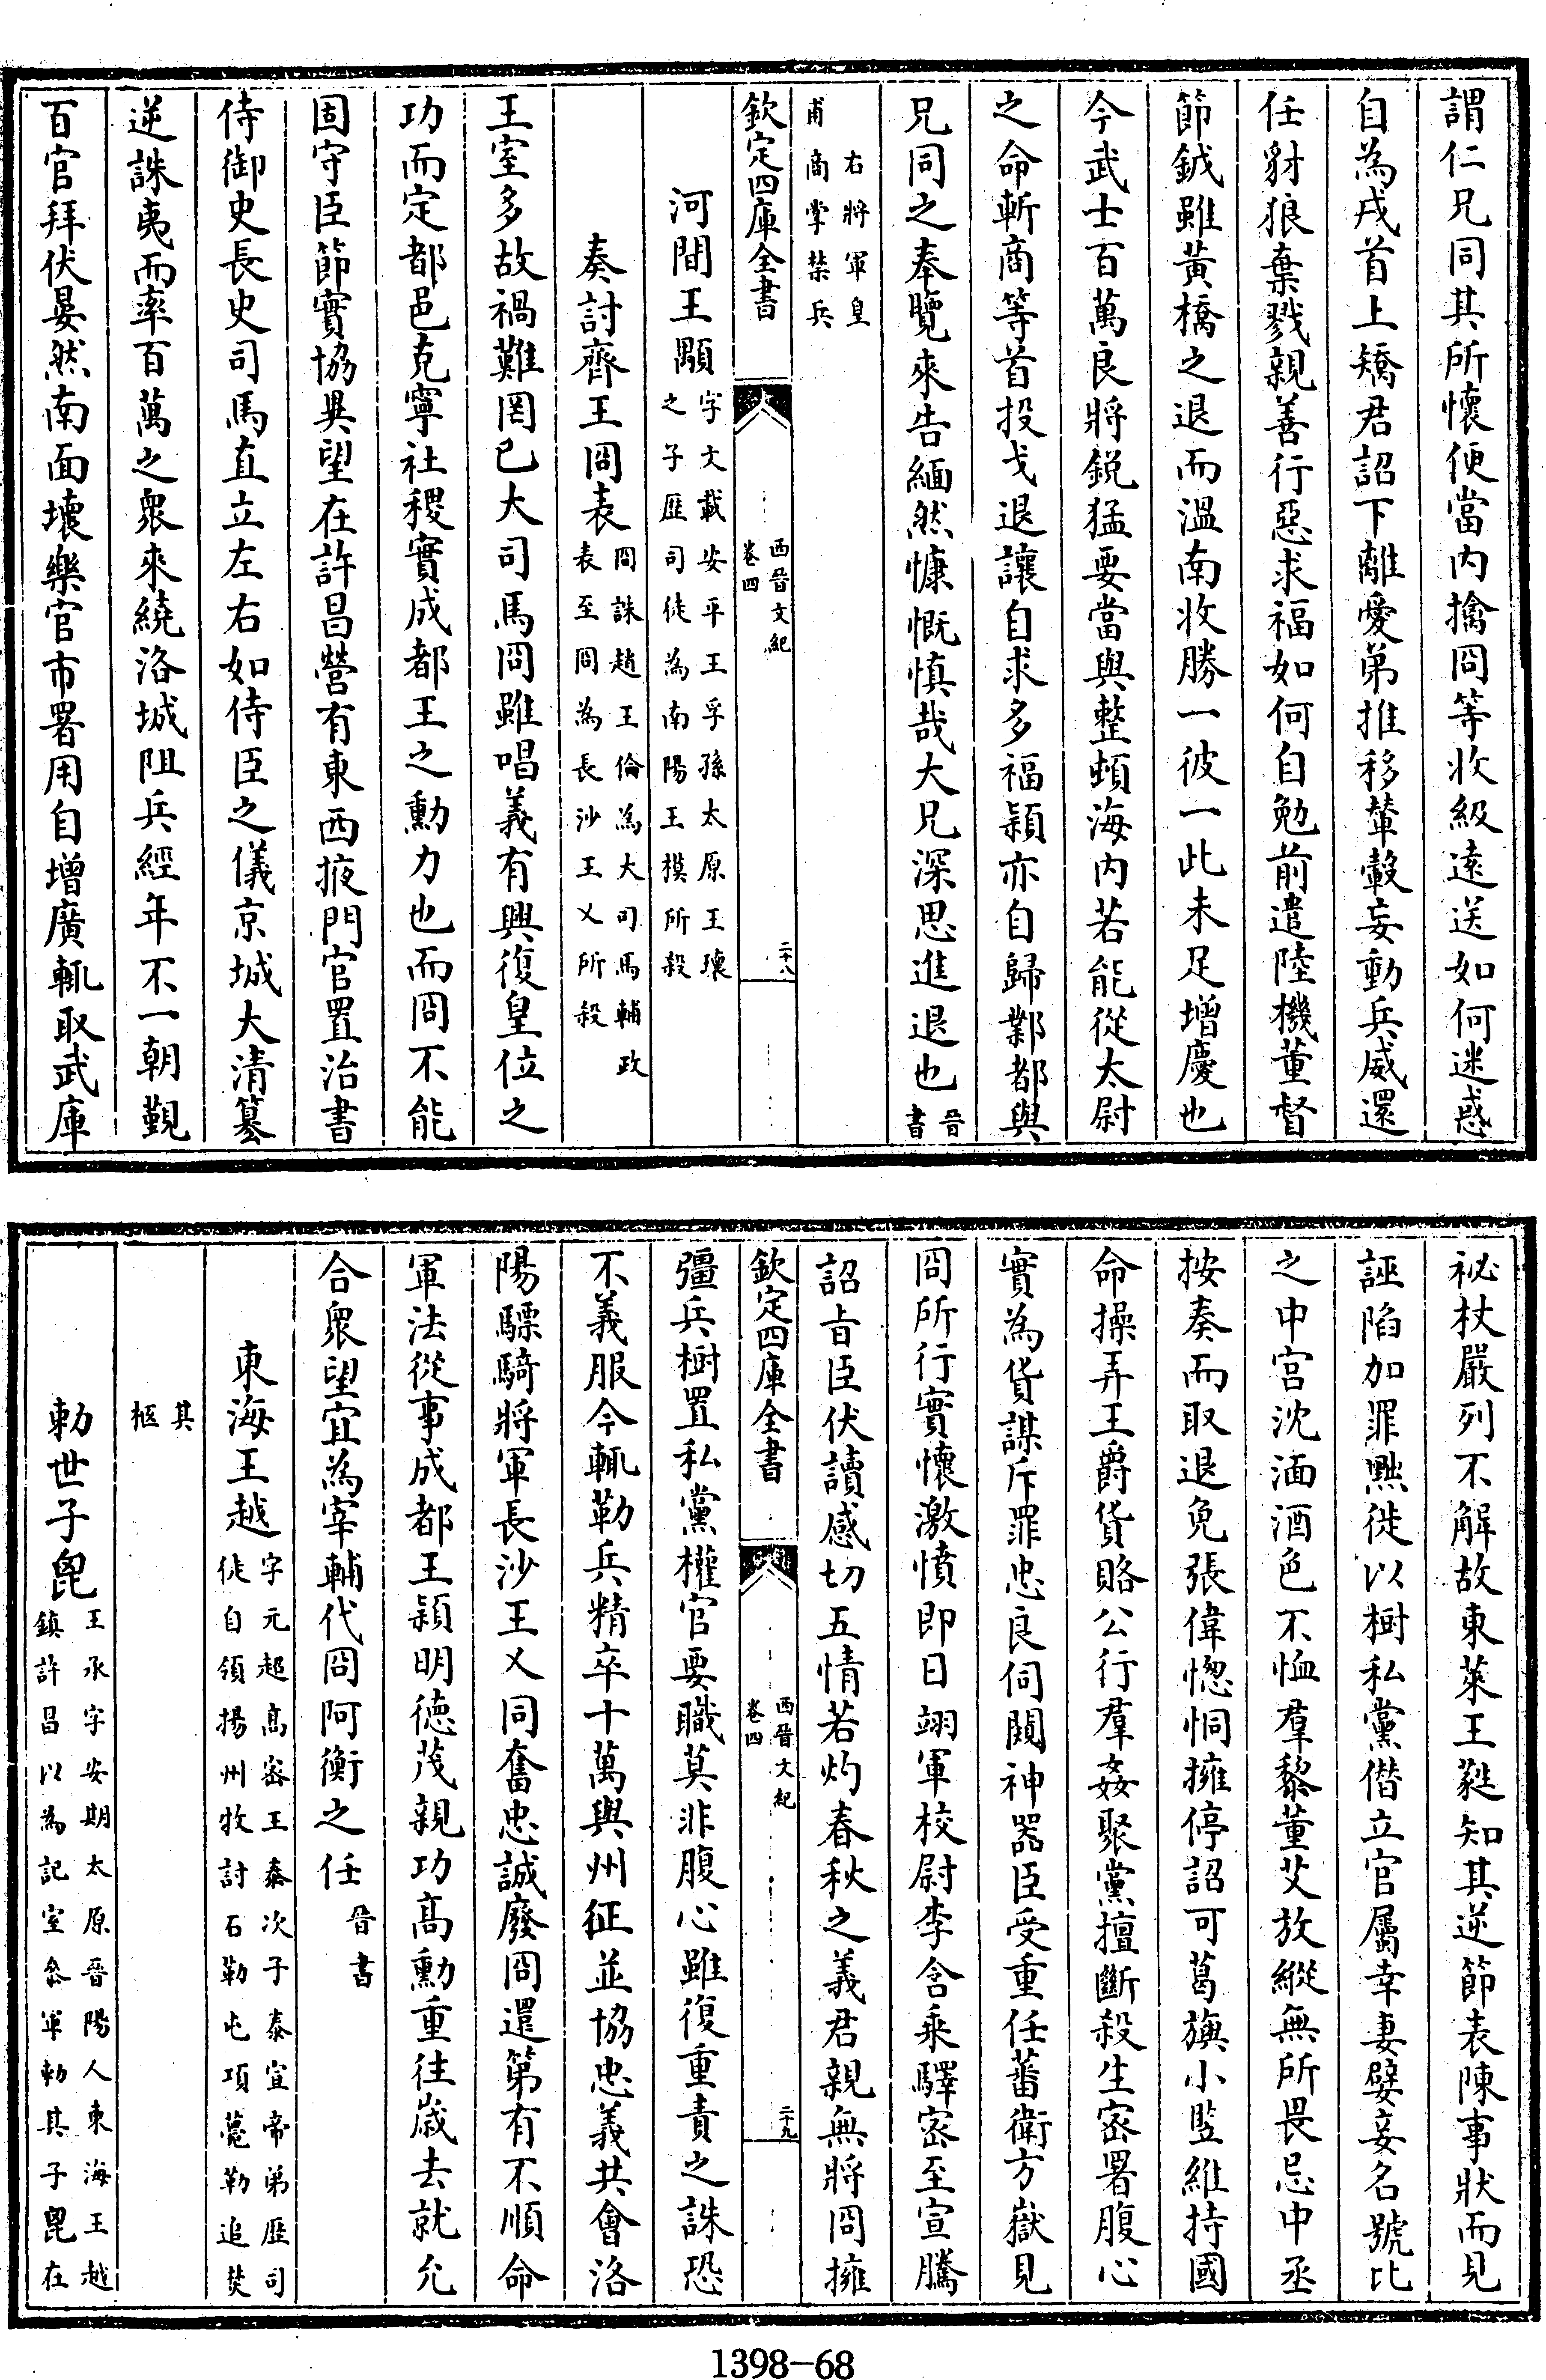 謂仁兄同其所懷便當内擒冏等收級逺送如何迷惑
自為戎首上矯君詔下離愛弟推移輦轂妄動兵威還
任豺狼棄戮親善行惡求福如何自勉前遣陸機董督
節鉞雖黄橋之退而溫南收勝一彼一此未足增慶也
今武士百萬良將鋭猛要當與整頓海内若能從太尉
之命斬商等首投戈退讓自求多福穎亦自歸鄴都與
兄同之奉覽來告緬然慷慨慎哉大兄深思進退也晉書
右將軍皇甫商掌禁兵
欽定四庫全書
西晉文紀
卷四
二十八
河間王顒字文載安平王孚孫太原王瓌之子歴司徒為南陽王模所殺
奏討齊王冏表冏誅趙王倫為大司馬輔政表至冏為長沙王乂所殺
王室多故禍難罔已大司馬冏雖唱義有興復皇位之
功而定都邑克寧社稷實成都王之勲力也而冏不能
固守臣節實協異望在許昌營有東西掖門官置治書
侍御史長史司馬直立左右如侍臣之儀京城大清簒
逆誅夷而率百萬之衆來繞洛城阻兵經年不一朝覲
百官拜伏晏然南面壊樂官市署用自增廣輒取武庫
祕杖嚴列不解故東萊王蕤知其逆節表陳事狀而見
誣陷加罪黜徙以樹私黨僭立官屬幸妻嬖妾名號比
之中宫沈湎酒色不恤羣黎董艾放縱無所畏忌中丞
按奏而取退免張偉惚恫擁停詔可葛旟小竪維持國
命操弄王爵貨賂公行羣姦聚黨擅斷殺生宻署腹心
實為貨謀斥罪忠良伺闚神器臣受重任蕃衛方嶽見
冏所行實懷激憤即日翊軍校尉李含乘驛宻至宣騰
詔㫖臣伏讀感切五情若灼春秋之義君親無將冏擁
欽定四庫全書
西晉文紀
卷四
二十九
彊兵樹置私黨權官要職莫非腹心雖復重責之誅恐
不義服今輒勒兵精卒十萬與州征並協忠義共會洛
陽驃騎將軍長沙王乂同奮忠誠廢冏還第有不順命
軍法從事成都王穎明徳茂親功髙勲重往嵗去就允
合衆望宜為宰輔代冏阿衡之任晉書
東海王越字元超髙宻王泰次子泰宣帝弟歴司徒自領揚州牧討石勒屯項薨勒追焚
其柩
勅世子毘王承字安期太原晉陽人東海王越鎮許昌以為記室叅軍勅其子毘在
1398-68